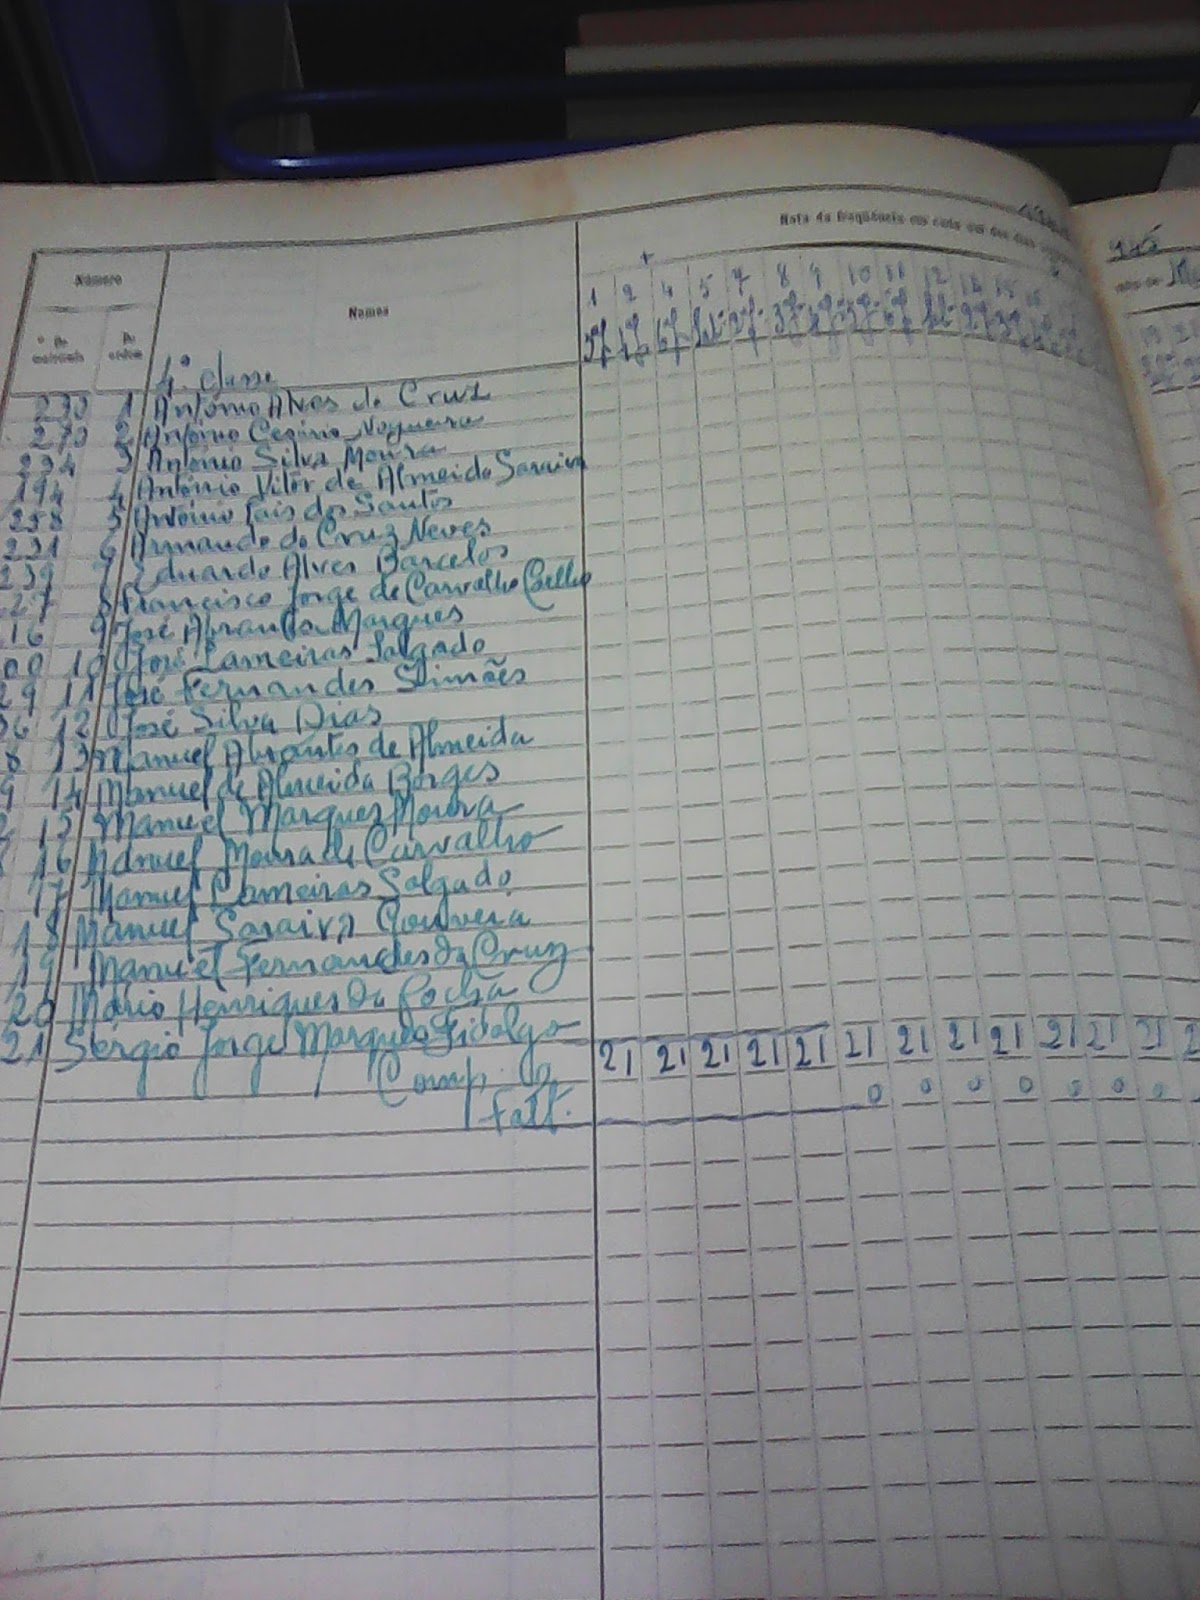 Nota da freqüência em cada um dos dias
Número
Nomes
de matrícula
De ordem
1 2 4 5 7 8 9 10 11 12 14 15 16
4ª classe
230 1 António Alves da Cruz
270 2 António Cesário Nogueira
234 3 António Silva Moura
194 4 António Vitór de Almeida Saraiva
258 5 António Pais dos Santos
231 6 Armando da Cruz Neves
239 7 Eduardo Alves Barcelos
27 8 Francisco Jorge de Carvalho Coelho
16 9 José Abrantes Marques
00 10 José Lameiras Salgado
29 11 José Fernandes Simões
36 12 José Silva Dias
8 13 Manuel Abrantes de Almeida
9 14 Manuel de Almeida Borges
2 15 Manuel Marques Moura
16 Manuel Moura de Carvalho
17 Manuel Lameiras Salgado
18 Manuel Saraiva Gouveia
19 Manuel Fernandes da Cruz
20 Mário Henriques da Rocha
21 Sérgio Jorge Marques Fidalgo
Comp. 21 21 21 21 21 21 21 21 21 21 21 21 2
Falt. 0 0 0 0 0 0 0